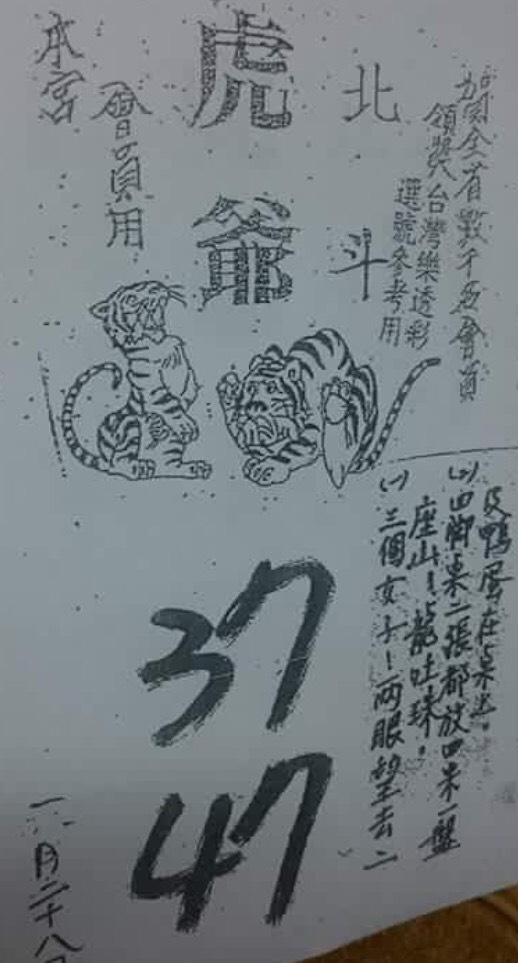 賀全省數千名會員
領獎台灣樂透彩
選號參考用
北斗
虎爺
會員用
本宮
(一)三個女士!兩眼望去二
座山!龍吐珠。
(二)四腳桌二張都放四菓一盤
及鴨蛋在桌
37
47
月二十八